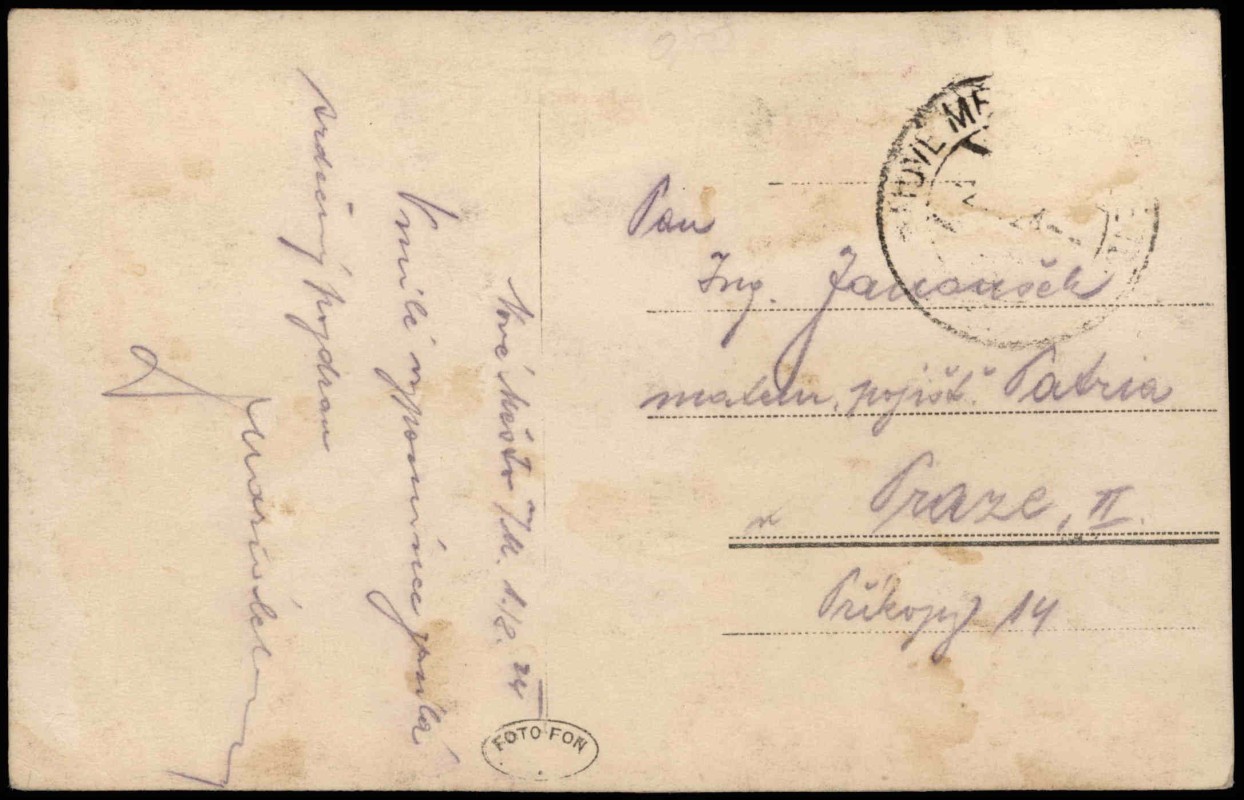 Nové Město 7/M. 1./8. 24
V milé vzpomínce posílá
srdečný pozdrav
Pan
Ing. Janoušek
matem. pojišť. Patria
v Praze, II.
Příkopy 14
NOVÉ MĚ
FOTO FON